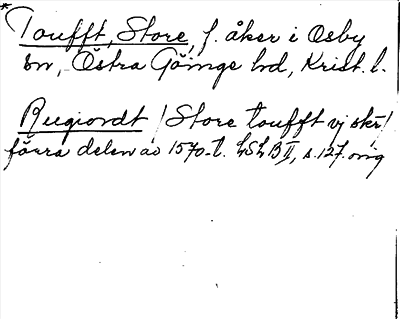 * Toufft, Store, f. åker i Osby
sn, Östra Göinge hd, Krist. l.
Rugiordt / Store toufft vj skr /
förra delen av 1570-t. LSLB II, s. 127. orig